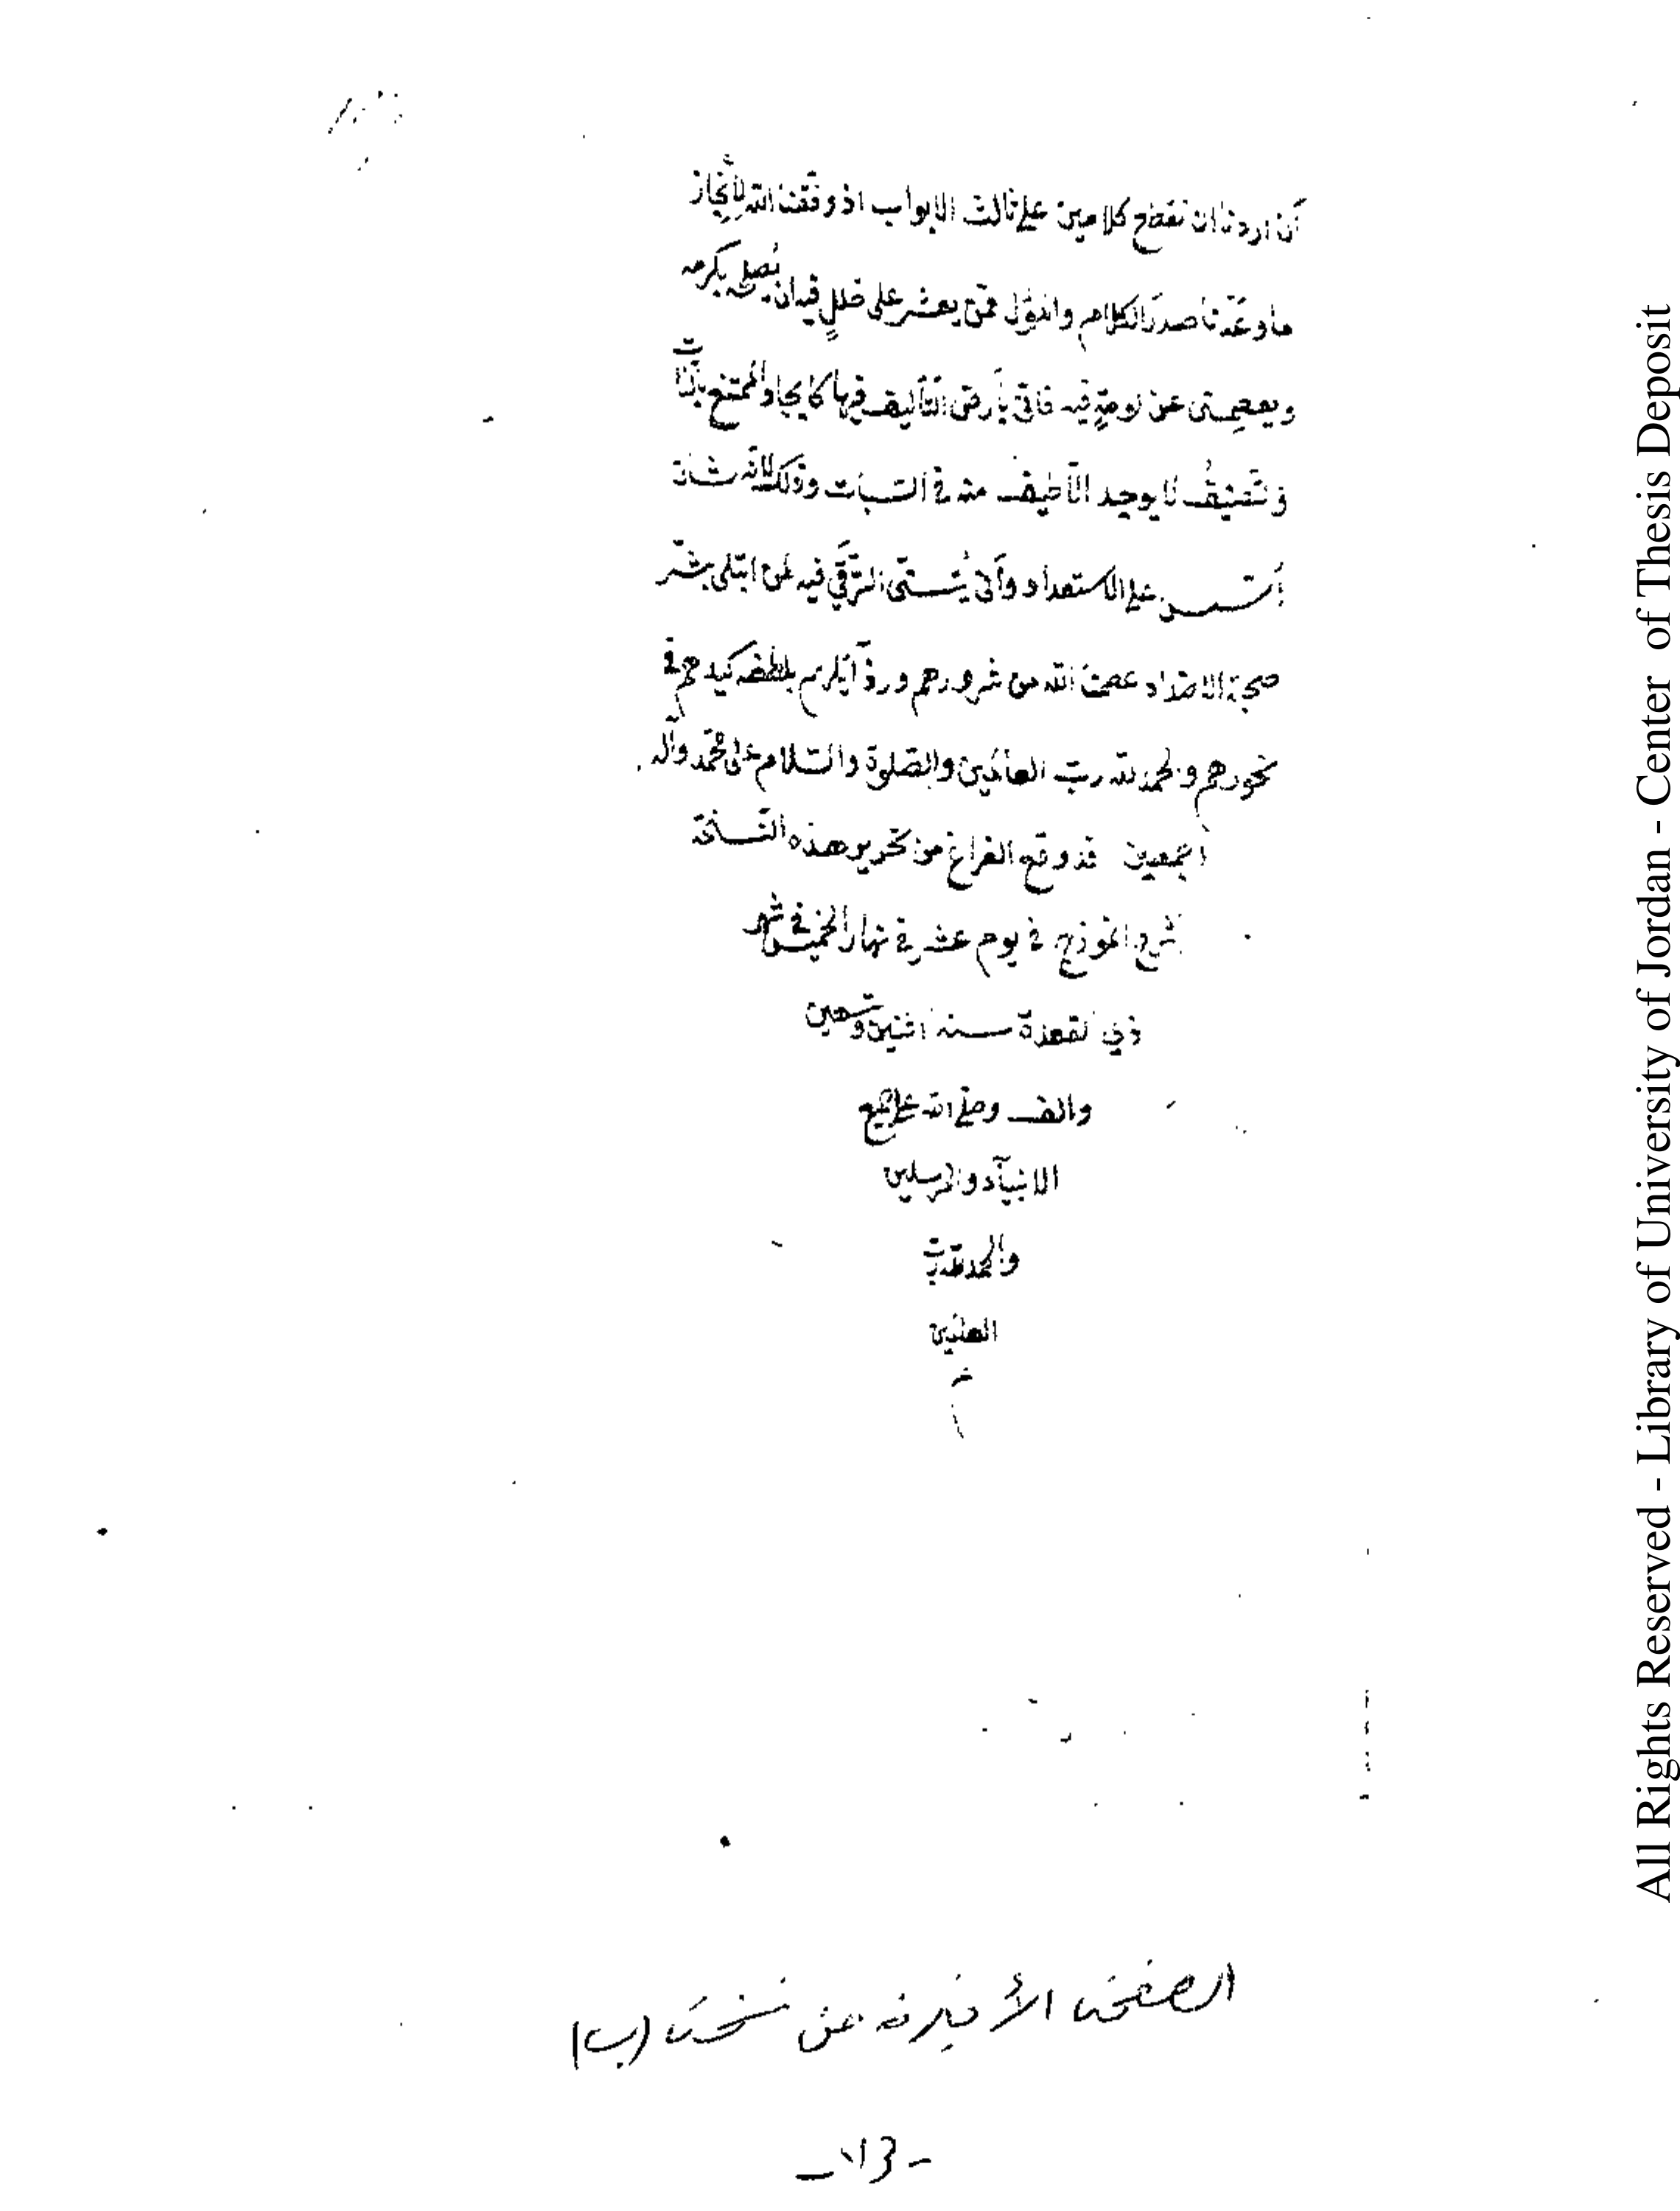 آن اردنا ان نقطع كلامين على ثالث الابواب اذ وفقنا الله لانجاز
ما وعدنا صدر الكلام والمؤل فمن يعثر على خلل فيه ان يصلحه بكرمه
ويعصمنى عن لومة فيه فانى بأرض التأليف فيها كايجاد الممتنع بالذات
والتصنيف لا يوجد الا طيف منه فى السبات وذلك لانه شان
أسس على الاستعداد وأنى يتسنى الترقى فيه لمن ابتلى بشر
صحبة الاضداد عصمنا الله من شرورهم ورد بلطفه كيدهم فى
نحورهم والحمد لله رب العالمين والصلوة والسلام على محمد وآله
اجمعين قد وقع الفراغ من تحرير هذه النسخة
شرح انموذج فى يوم عشر فى نهار الخميس فى شهر
ذي القعدة سنة اثنين وتسعين
والف وصلى الله على جميع
الانبيآء والمرسلين
والحمد لله رب
العلمين
م
الصفحة الأخيرة من نسخة (ب)
All Rights Reserved - Library of University of Jordan - Center of Thesis Deposit